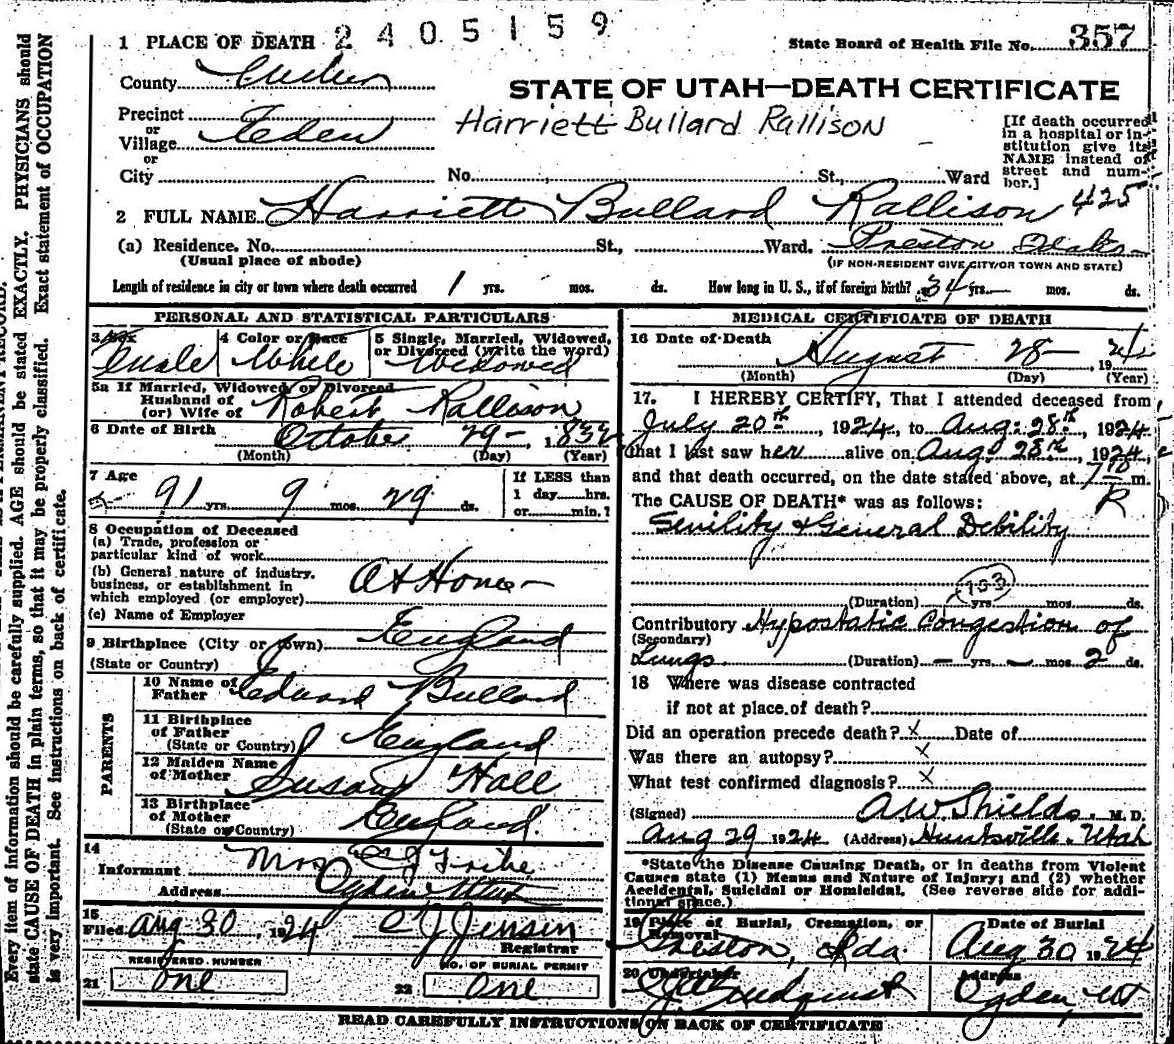 2405159
State Board of Health File No. 357
1 PLACE OF DEATH
County
STATE OF UTAH—DEATH CERTIFICATE
Precinct
or
Village Eden
Harriett Bullard Rallison
[If death occurred in a hospital or institution give its NAME instead of street and number.]
or
City No. St., Ward
2 FULL NAME Harriett Bullard Rallison 425
(a) Residence. No. St., Ward. Preston Idaho
(Usual place of abode) (IF NON-RESIDENT GIVE CITY/OR TOWN AND STATE)
Length of residence in city or town where death occurred 1 yrs. mos. ds. How long in U. S., if of foreign birth? 34 yrs. — mos. ds.
PERSONAL AND STATISTICAL PARTICULARS
3 Sex 4 Color or Race 5 Single, Married, Widowed, or Divorced (write the word)
White Widowed
5a If Married, Widowed or Divorced
Husband of
(or) Wife of Robert Rallison
6 Date of Birth October 29— 1832
(Month) (Day) (Year)
7 Age If LESS than
91 yrs. 9 mos. 29 ds. 1 day hrs.
or min.?
8 Occupation of Deceased
(a) Trade, profession or
particular kind of work
(b) General nature of industry,
business, or establishment in
which employed (or employer) At Home—
(c) Name of Employer
9 Birthplace (City or town) England
(State or Country)
PARENTS
10 Name of
Father Edward Bullard
11 Birthplace
of Father
(State or Country) England
12 Maiden Name
of Mother Susan Hall
13 Birthplace
of Mother
(State or Country) England.
14
Informant Mrs C J
Address Ogden Utah
15
Filed Aug 30, 1924 C J Jensen
Registrar
REGISTERED NUMBER NO. OF BURIAL PERMIT
21 one 22 one
MEDICAL CERTIFICATE OF DEATH
16 Date of Death August 28— 1924
(Month) (Day) (Year)
17. I HEREBY CERTIFY, That I attended deceased from
July 20th, 1924, to Aug. 28th, 1924
that I last saw her alive on Aug. 28th, 1924,
and that death occurred, on the date stated above, at m.
The CAUSE OF DEATH* was as follows:
Senility & General Debility
(Duration) yrs. mos. ds.
Contributory Hypostatic Congestion of
(Secondary)
Lungs (Duration) — yrs. — mos. 2 ds.
18 Where was disease contracted
if not at place of death?
Did an operation precede death? X Date of
Was there an autopsy? X
What test confirmed diagnosis? X
(Signed) AW Shields. M. D.
Aug 29 1924 (Address) Huntsville. Utah
*State the Disease Causing Death, or in deaths from Violent
Causes state (1) Means and Nature of Injury; and (2) whether
Accidental, Suicidal or Homicidal. (See reverse side for addi-
tional space.)
19 Place of Burial, Cremation, or Removal Date of Burial
Preston, Ida. Aug 30 1924
20 Undertaker Address
Ogden, Ut
READ CAREFULLY INSTRUCTIONS ON BACK OF CERTIFICATE
Every item of information should be carefully supplied. AGE should be stated EXACTLY. PHYSICIANS should
state CAUSE OF DEATH in plain terms, so that it may be properly classified. Exact statement of OCCUPATION
is very important. See instructions on back of certificate.